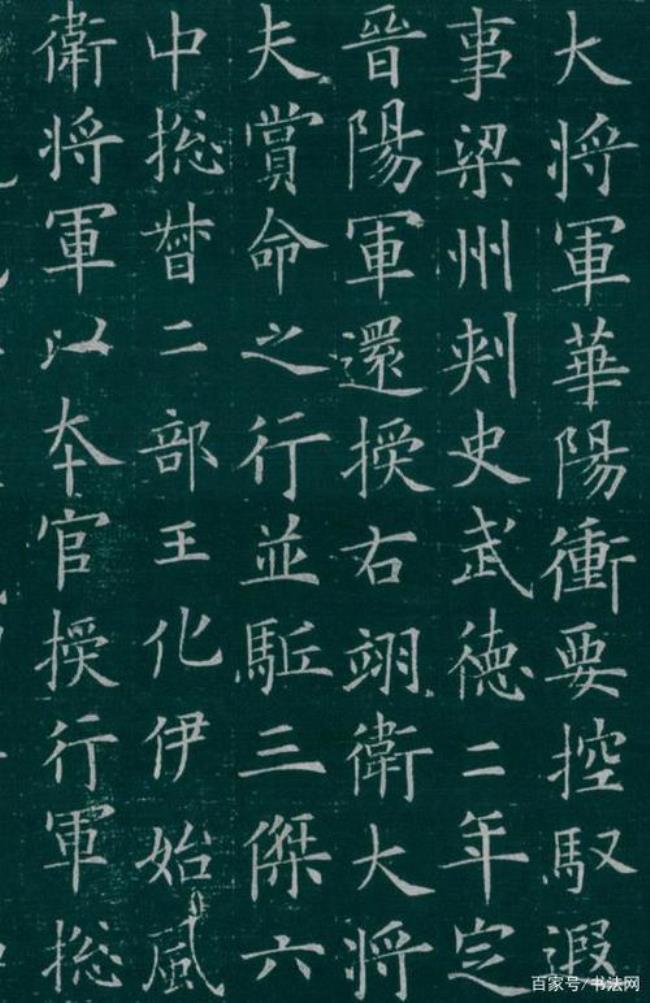 大将軍華陽衝要控馭遐
事梁州刺史武德二年定
晉陽軍還授右翊衛大將
夫賞命之行並駈三傑六
中捴督二部王化伊始風
衛将軍以本官授行軍捴
百家号/书法网